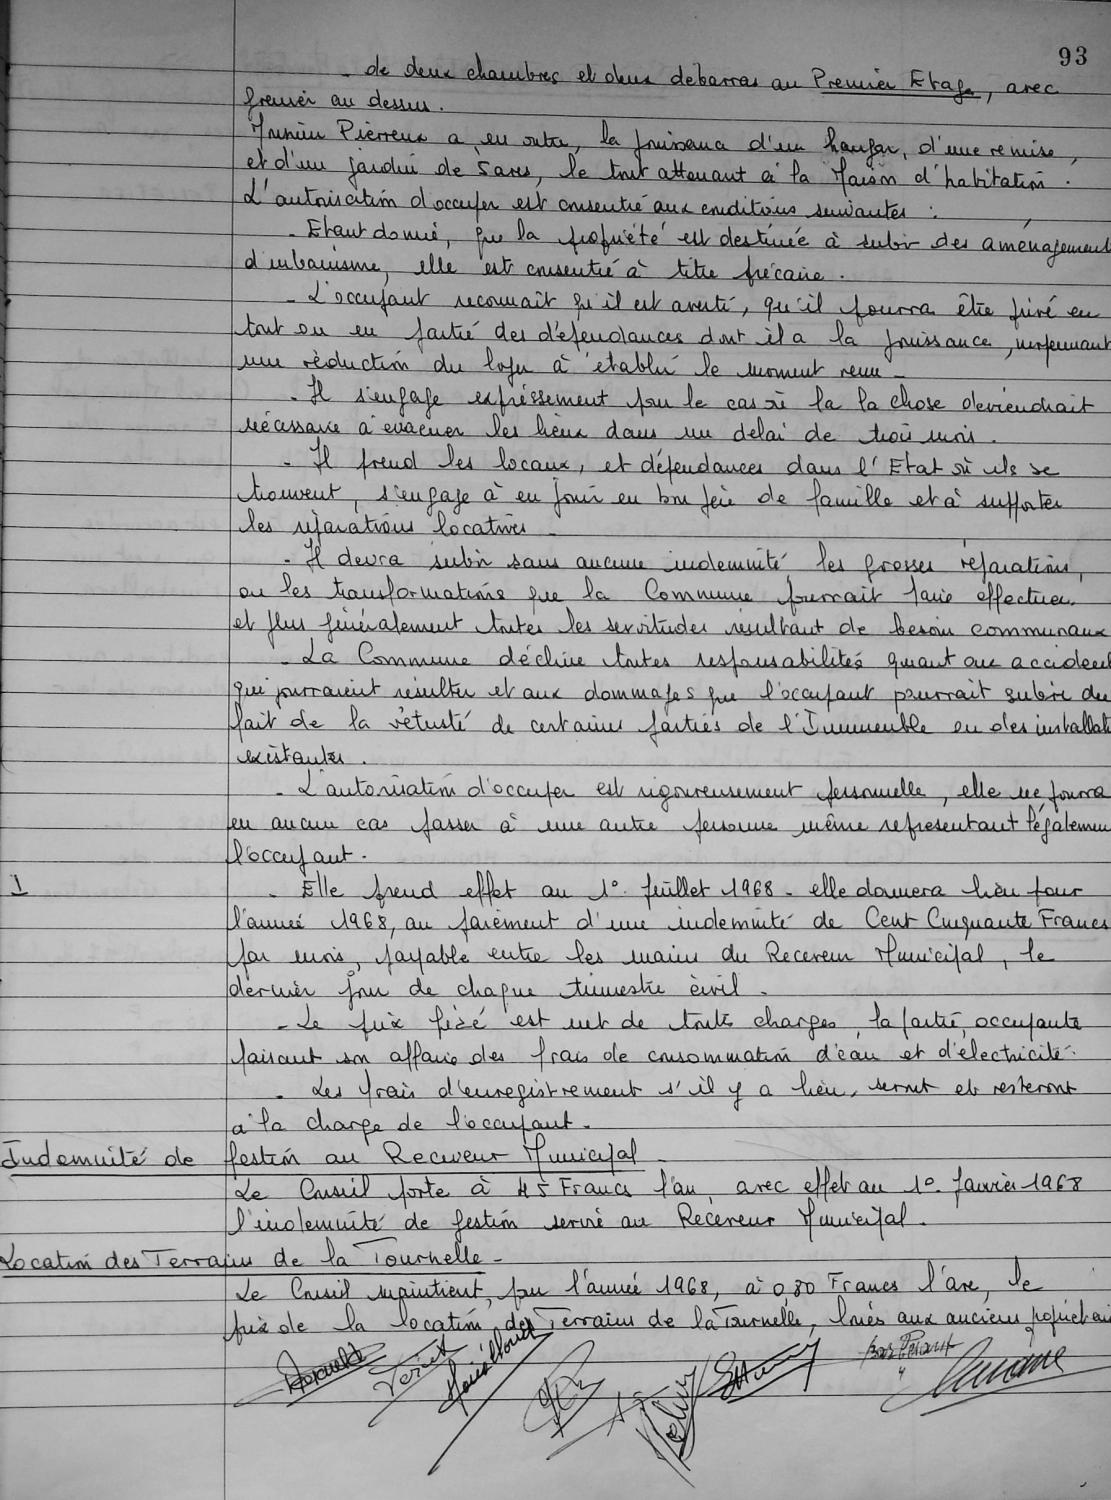 93
- de deux chambres et deux debarras au Premier Etage, avec
grenier au dessus.
Pierreux a, en outre, la jouissance d'un hangar, d'une remise,
et d'un jardin de 5 ares, le tout attenant à la Maison d'habitation.
L'autorisation d'occuper est consentie aux conditions suivantes :
- Etant donné, que la propriété est destinée à subir des aménagement
d'urbanisme, elle est consentie à titre précaire.
- L'occupant reconnaît qu'il est averti, qu'il pourra être privé en
tout ou en partie des dépendances dont il a la jouissance, moyennant
une réduction du loyer à établir le moment venu -
- Il s'engage expréssement pour le cas où la la chose deviendrait
nécessaire à évacuer les lieux dans un delai de trois mois.
- Il prend les locaux, et dépendances dans l'Etat où ils se
trouvent, s'engage à en jouir en bon père de famille et à supporter
les réparations locatives -
- Il devra subir sans aucune indemnité les grosses réparations,
ou les transformations que la Commune pourrait faire effectuer
et plus généralement toutes les servitudes résultant de besoins communaux
- La Commune décline toutes responsabilités quant aux accident
qui pourraient résulter et aux dommages que l'occupant pourrait subir du
fait de la vétusté de certaines parties de l'Immeuble ou des installati
existantes.
- L'autorisation d'occuper est rigoureusement personnelle, elle ne pourra
en aucun cas passer à une autre personne même représentant légalemen
l'occupant.
1
- Elle prend effet au 1°. Juillet 1968 - elle donnera lieu pour
l'année 1968, au paiement d'une indemnité de Cent Cinquante Francs
par mois, payable entre les mains du Receveur Municipal, le
dernier jour de chaque trimestre civil -
- Le prix fixé est net de toute charges, la partie occupante
faisant son affaire des frais de consommation d'eau et d'électricité.
- Les frais d'enregistrement s'il y a lieu, seront et resteront
à la charge de l'occupant -
Indemnité de gestion au Receveur Municipal -
Le Conseil porte à 45 Francs l'an, avec effet au 1°. Janvier 1968
l'indemnité de gestion servie au Receveur Municipal.
Location des Terrains de la Tournelle -
Le Conseil maintient, pour l'année 1968, à 0,80 Francs l'are, le
prix de la location des Terrains de la Tournelle, loués aux anciens propriétai